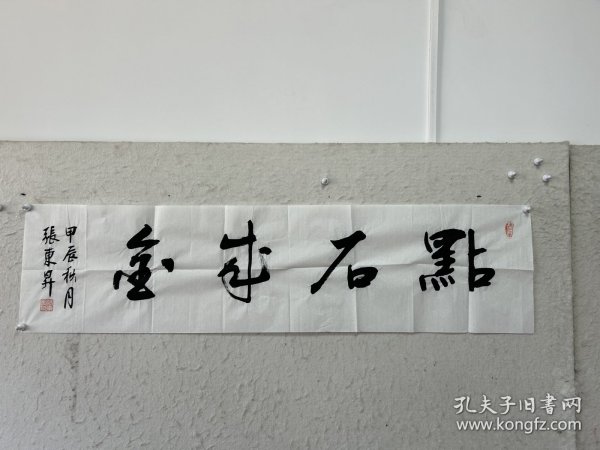 點石成金
甲辰秋月
張東昇
孔夫子旧书网
www.kongfz.com